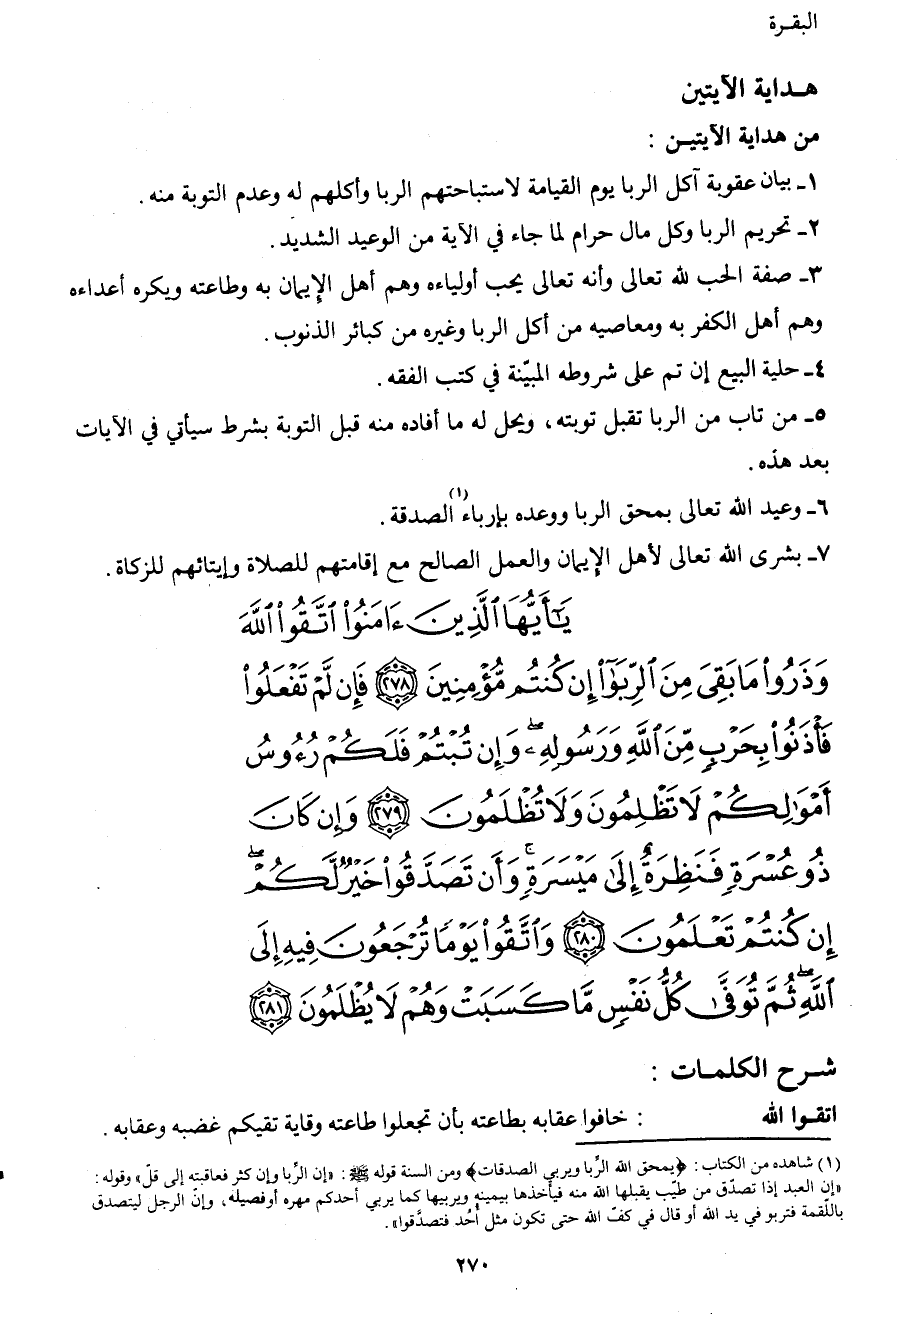 البقـرة
هـداية الآيتين
من هداية الآيتيـن :
١ـ بيان عقوبة آكل الربا يوم القيامة لاستباحتهم الربا وأكلهم له وعدم التوبة منه .
٢ـ تحريم الربا وكل مال حرام لما جاء في الآية من الوعيد الشديد .
٣ـ صفة الحب لله تعالى وأنه تعالى يحب أولياءه وهم أهل الإيمان به وطاعته ويكره أعداءه
وهم أهل الكفر به ومعاصيه من أكل الربا وغيره من كبائر الذنوب .
٤ـ حلية البيع إن تم على شروطه المبيّنة في كتب الفقه .
٥ـ من تاب من الربا تقبل توبته ، ويحل له ما أفاده منه قبل التوبة بشرط سيأتي في الآيات
بعد هذه .
٦ـ وعيد الله تعالى بمحق الربا ووعده بإرباء (١) الصدقة .
٧ـ بشرى الله تعالى لأهل الإيمان والعمل الصالح مع إقامتهم للصلاة وإيتائهم للزكاة .
يَٰٓأَيُّهَا ٱلَّذِينَ ءَامَنُوا۟ ٱتَّقُوا۟ ٱللَّهَ
وَذَرُوا۟ مَا بَقِىَ مِنَ ٱلرِّبَوٰٓا۟ إِن كُنتُم مُّؤْمِنِينَ ٢٧٨ فَإِن لَّمْ تَفْعَلُوا۟
فَأْذَنُوا۟ بِحَرْبٍ مِّنَ ٱللَّهِ وَرَسُولِهِۦ ۖ وَإِن تُبْتُمْ فَلَكُمْ رُءُوسُ
أَمْوَٰلِكُمْ لَا تَظْلِمُونَ وَلَا تُظْلَمُونَ ٢٧٩ وَإِن كَانَ
ذُو عُسْرَةٍ فَنَظِرَةٌ إِلَىٰ مَيْسَرَةٍ ۚ وَأَن تَصَدَّقُوا۟ خَيْرٌ لَّكُمْ ۖ
إِن كُنتُمْ تَعْلَمُونَ ٢٨٠ وَٱتَّقُوا۟ يَوْمًا تُرْجَعُونَ فِيهِ إِلَى
ٱللَّهِ ۖ ثُمَّ تُوَفَّىٰ كُلُّ نَفْسٍ مَّا كَسَبَتْ وَهُمْ لَا يُظْلَمُونَ ٢٨١
شـرح الكلمـات :
اتقـوا الله : خافوا عقابه بطاعته بأن تجعلوا طاعته وقاية تقيكم غضبه وعقابه .
(١) شاهده من الكتاب : ﴿يمحق الله الرِّبا ويربي الصدقات﴾ ومن السنة قوله ﷺ : «إن الرِّبا وإن كثر فعاقبته إلى قلّ» وقوله :
«إن العبد إذا تصدّق من طيّب يقبلها الله منه فيأخذها بيمينه ويربيها كما يربي أحدكم مهره أو فصيله ، وإنّ الرجل ليتصدق
باللّقمة فتربو في يد الله أو قال في كفّ الله حتى تكون مثل أُحُد فتصدَّقوا» .
٢٧٠